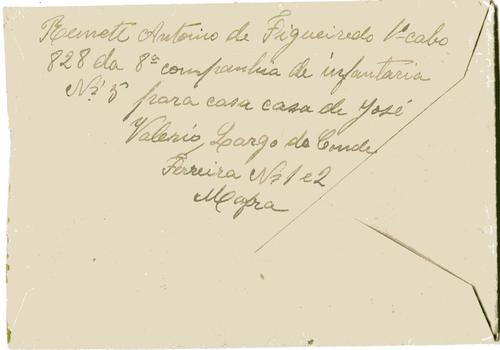 Remete Antonio de Figueiredo 1º cabo
828 da 8ª companhia de infantaria
Nº 5 para casa casa de José
Valerio, Largo do Conde
Ferreira Nº 1 e 2
Mafra